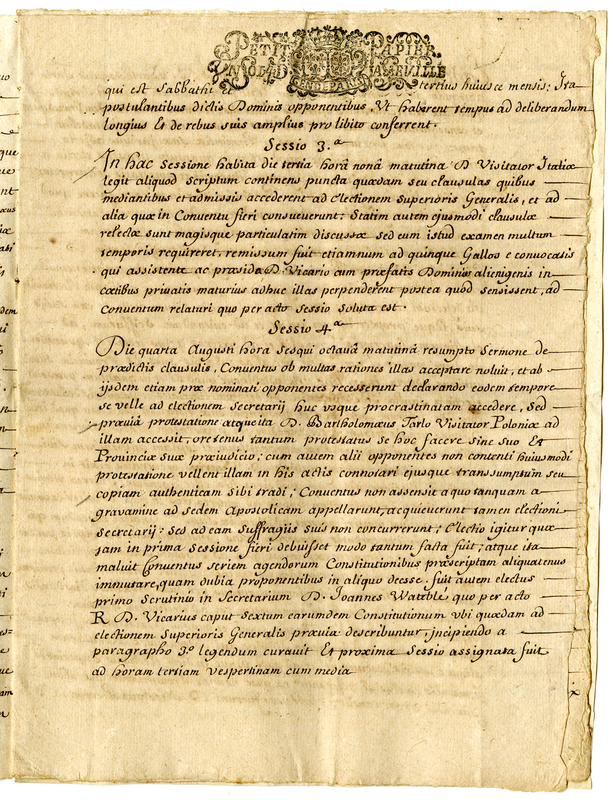 PETIT PAPIER
UN SOL 4 D LA FEUILLE
GEN DE PARIS
qui est Sabbathi et tertius huiusce mensis: Ita
postulantibus dictis Dominis opponentibus Ut haberent tempus ad deliberandum
longius Et de rebus suis amplius pro libito conferrent.
Sessio 3.a
In hac Sessione habita die tertia horâ nonâ matutinâ D. Visitator Italiæ
legit aliquod Scriptum continens puncta quædam seu clausulas quibus
mediantibus et admissis accederent ad electionem Superioris Generalis, et ad
alia quæ in Conventu fieri consueverunt: Statim autem ejusmodi clausulæ
relectæ sunt magisque particulatim discussæ sed cum istud examen multum
temporis requireret, remissum fuit etiamnum ad quinque Gallos e convocatis
qui assistente ac præside D. Vicario cum præfatis Dominis alienigenis in
cœtibus privatis maturius adhuc illas perpenderent postea quod sensissent, ad
Conventum relaturi quo peracto Sessio soluta est.
Sessio 4.a
Die quarta Augusti hora Sesqui octavâ matutinâ resumpto Sermone de
prædictis clausulis, Conventus ob multas rationes illas acceptare noluit, et ab
ijsdem etiam præ nominati opponentes recesserunt declarando eodem tempore
se velle ad electionem Secretarij huc usque procrastinatam accedere, Sed
præviâ protestatione atque ita D. Bartholomæus Tarlo Visitator Poloniæ ad
illam accessit, ore tenus tantum protestatus se hoc facere sine suo Et
Provinciæ suæ præjudicio; cum autem alii opponentes non contenti huiusmodi
protestatione vellent illam in his actis connotari ejusque transsumptum seu
copiam authenticam sibi tradi; Conventus non assensit a quo tanquam a
gravamine ad Sedem Apostolicam appellarunt, acquieverunt tamen electioni
Secretarij: Sed ad eam Suffragiis suis non concurrerunt; Electio igitur quæ
jam in prima Sessione fieri debuisset modo tantum facta fuit; atque ita
maluit Conventus Seriem agendorum Constitutionibus præscriptam aliquatenus
immutare, quam dubia proponentibus in aliquo deesse. fuit autem electus
primo Scrutinio in Secretarium D. Joannes Watebled quo peracto
R D. Vicarius caput Sextum earumdem Constitutionum ubi quædam ad
electionem Superioris Generalis prævia describuntur, incipiendo a
paragrapho 3.o legendum curavit Et proxima Sessio assignata fuit
ad horam tertiam vespertinam cum media